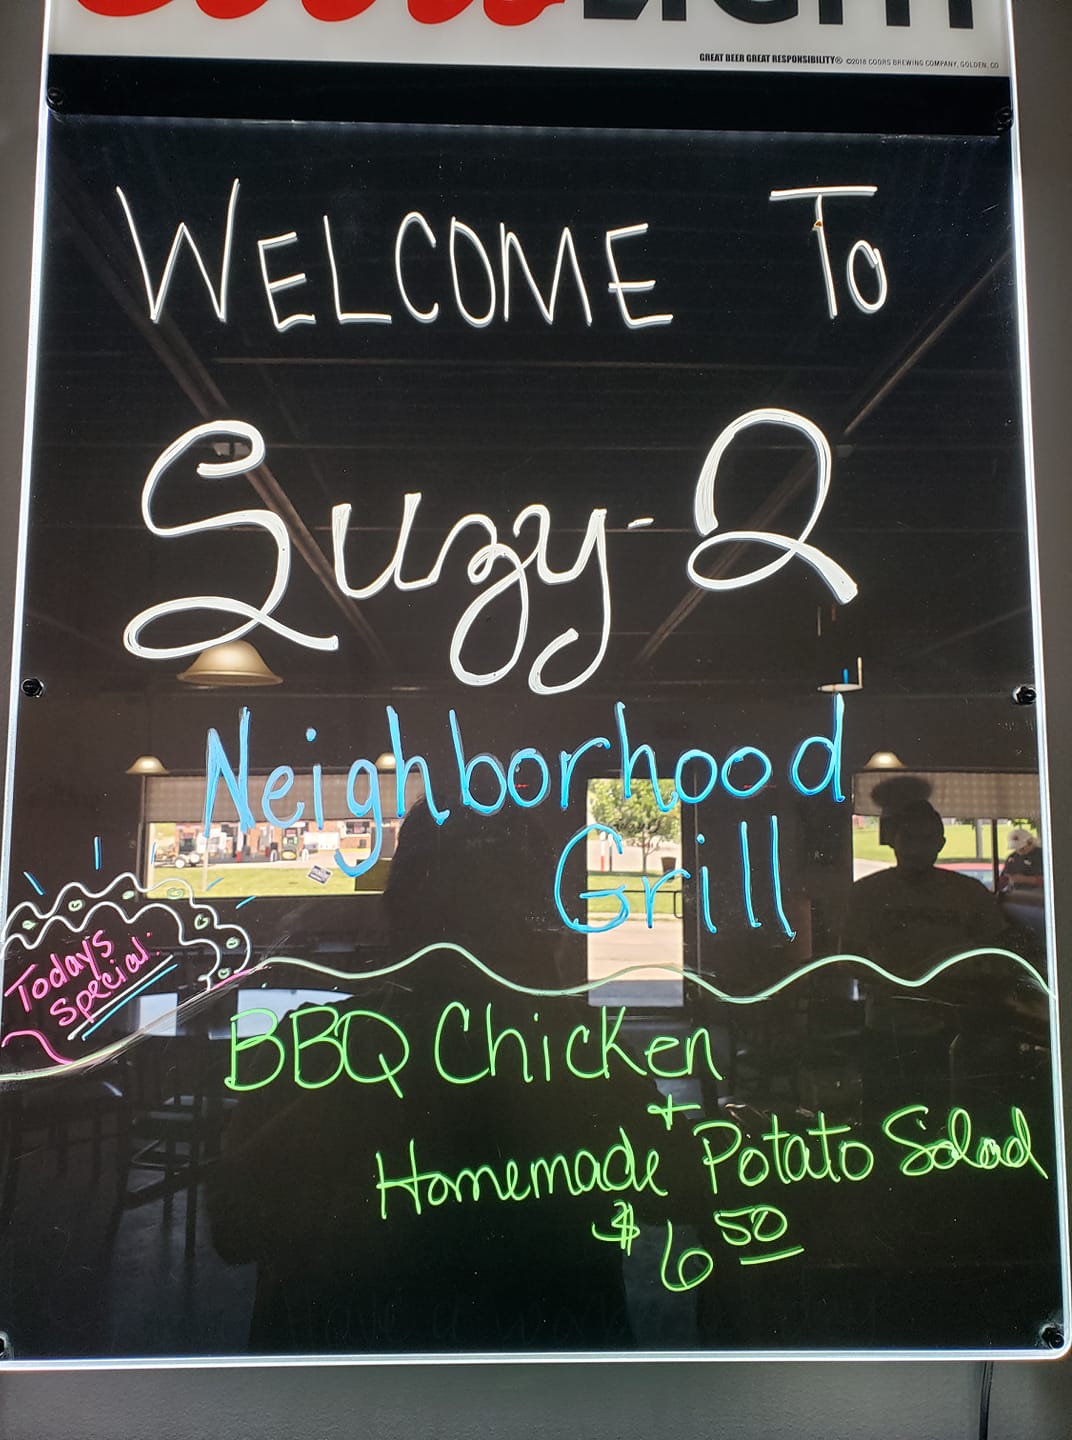 Coors LIGHT
GREAT BEER GREAT RESPONSIBILITY® ©2018 COORS BREWING COMPANY, GOLDEN, CO
WELCOME To
Suzy-Q
Neighborhood
Grill
Today's
Special:
BBQ Chicken
+
Homemade Potato Salad
$6 50